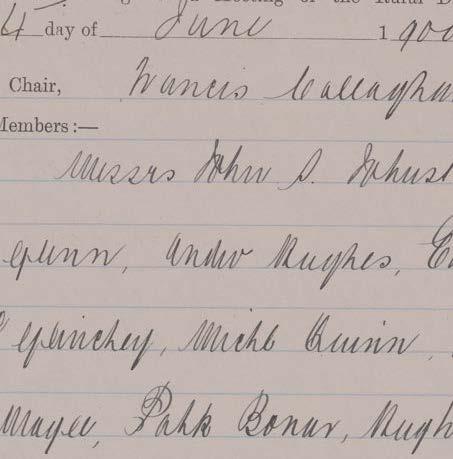 Meeting of the Rural D
4 day of June 1900
Chair, Francis Callaghan
Members:—
Messrs John S. Johnst
Glinn, Andw Hughes, E
Glinchey, Michl Quinn,
Magee, Patk Bonar, Hugh